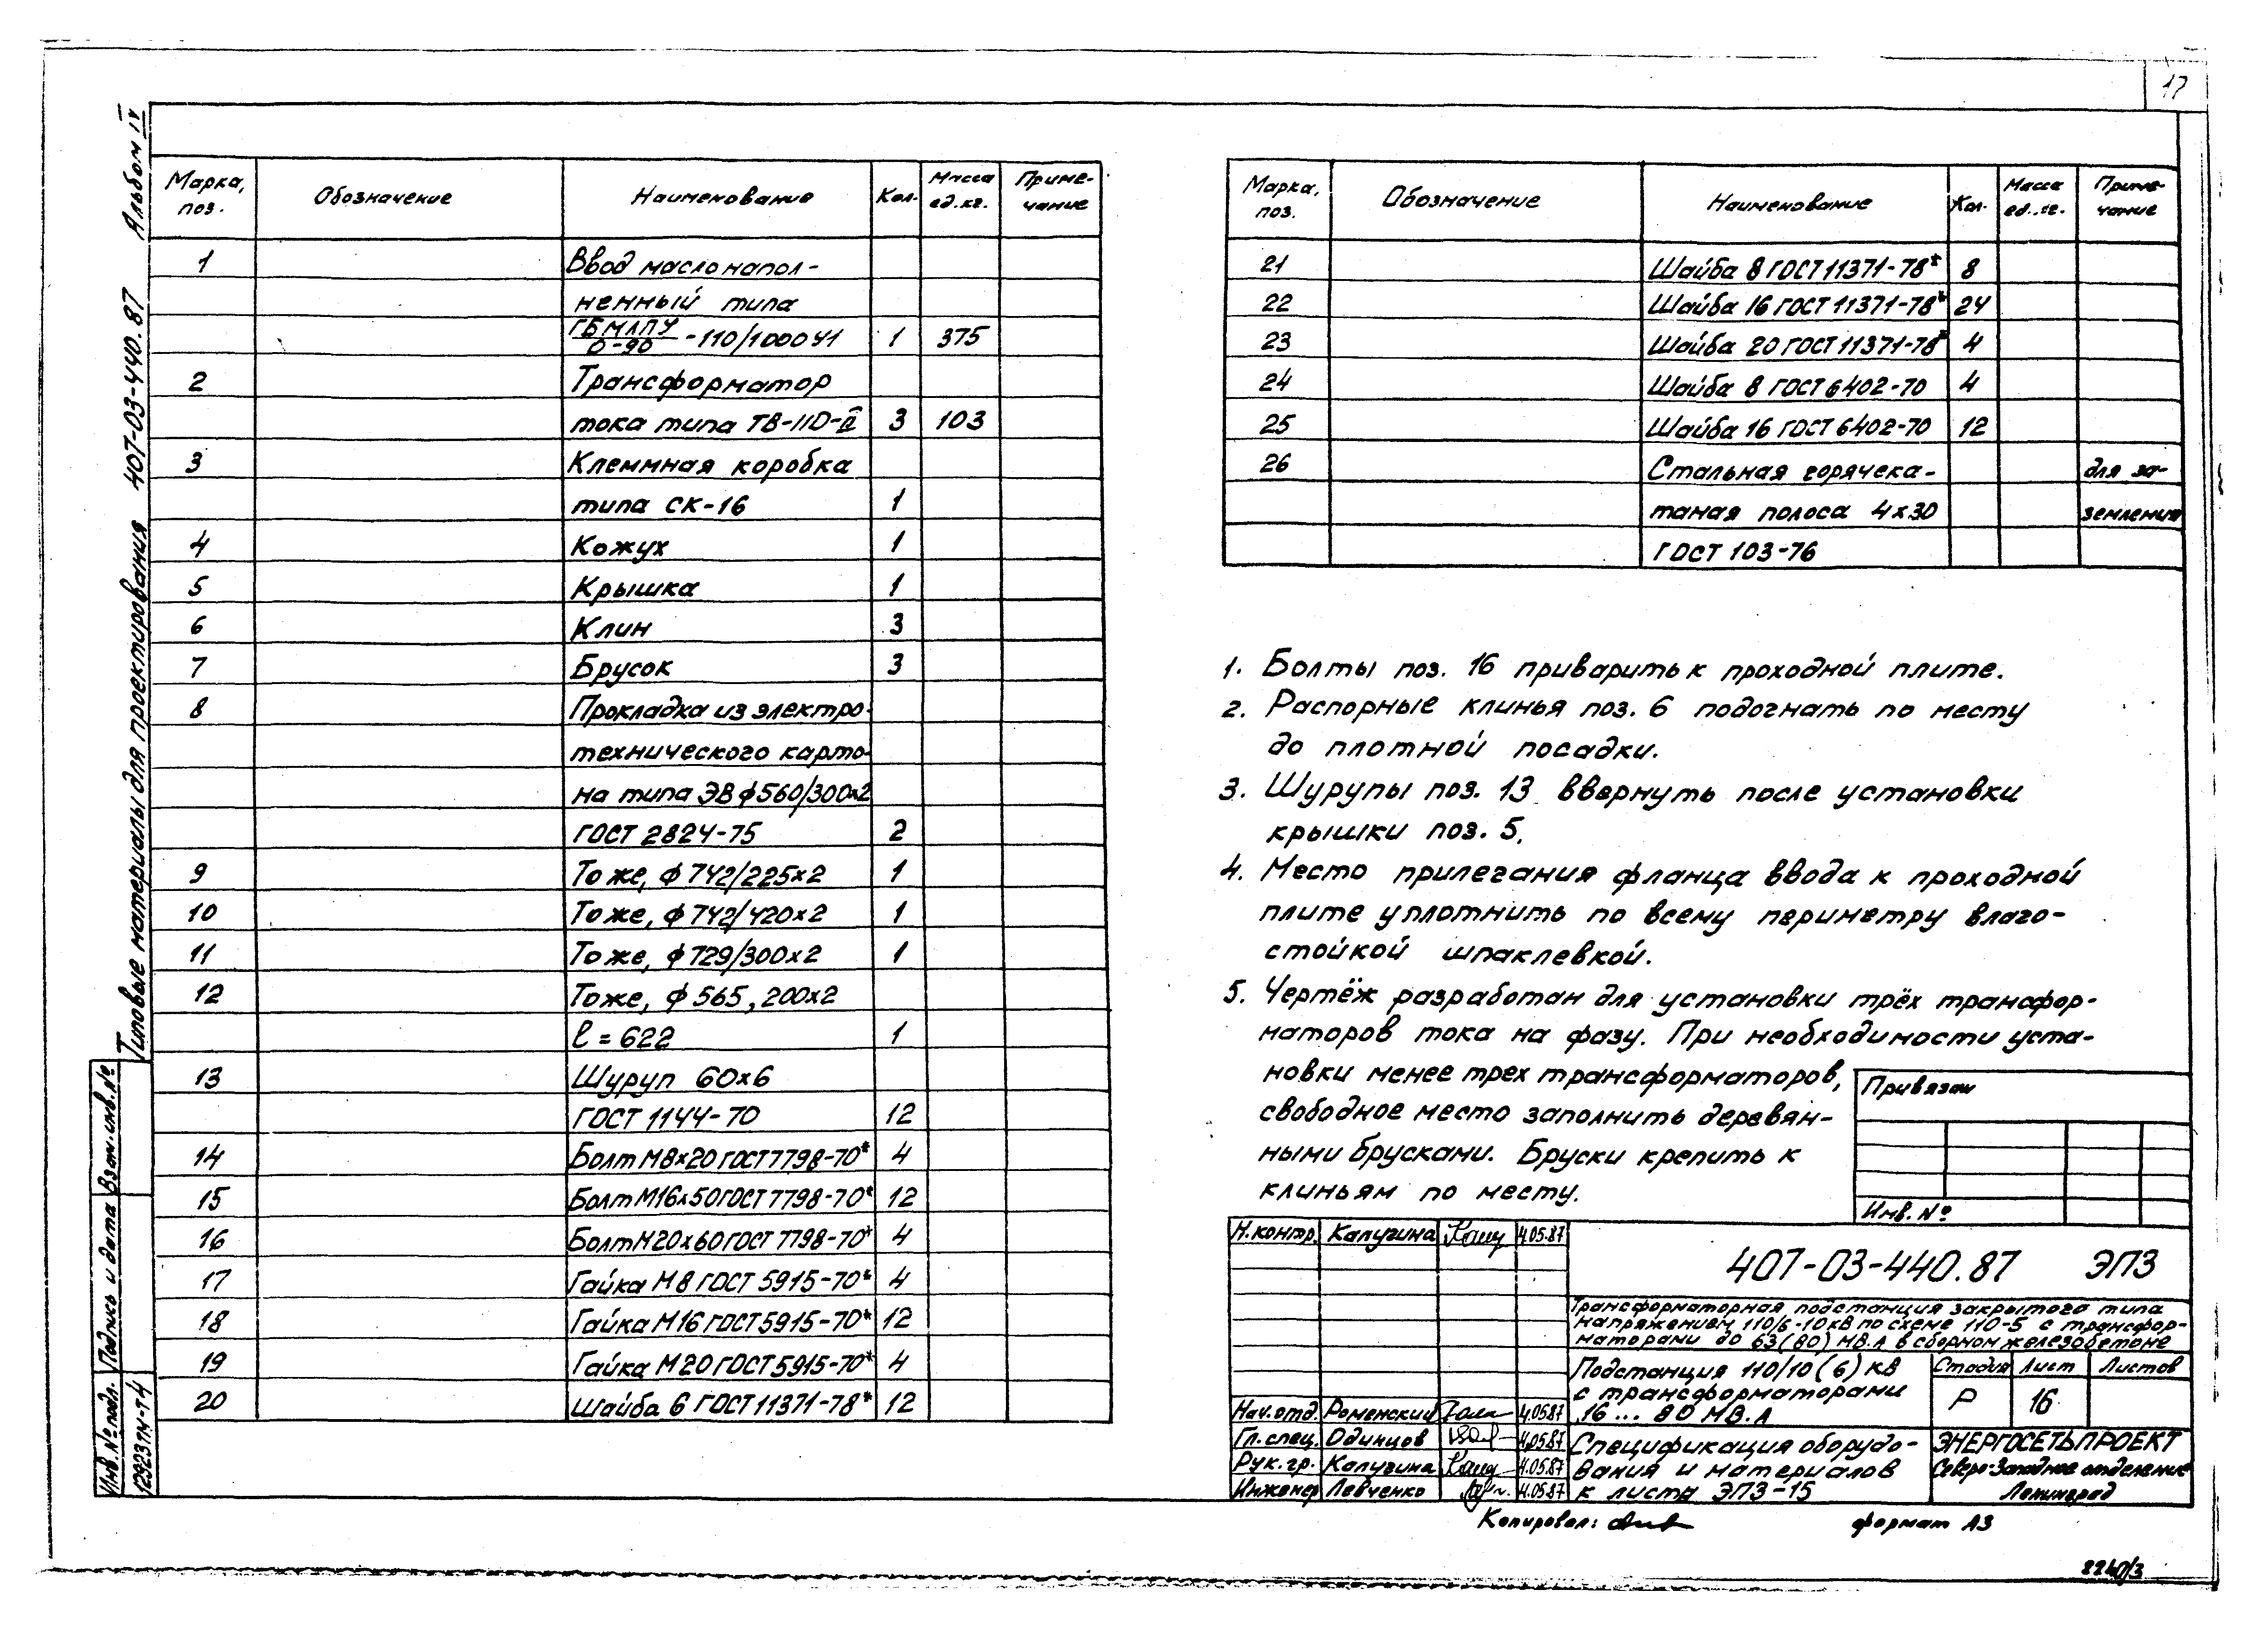 17
Альбом IV
407-03-440.87
Типовые материалы для проектирования
Марка, поз. Обозначение Наименование Кол. Масса ед.кг. Примечание
1 Ввод маслонапол-
ненный типа
ГБМЛПУ/0-90 -110/1000У1 1 375
2 Трансформатор
тока типа ТВ-110-II 3 103
3 Клеммная коробка
типа СК-16 1
4 Кожух 1
5 Крышка 1
6 Клин 3
7 Брусок 3
8 Прокладка из электро-
технического карто-
на типа ЭВ ϕ560/300х2
ГОСТ 2824-75 2
9 То же, ϕ742/225х2 1
10 То же, ϕ742/420х2 1
11 То же, ϕ729/300х2 1
12 То же, ϕ565, 200х2
ℓ=622 1
13 Шуруп 60х6
ГОСТ 1144-70 12
14 Болт М8х20 ГОСТ 7798-70* 4
15 Болт М16х50 ГОСТ 7798-70* 12
16 Болт М20х60 ГОСТ 7798-70* 4
17 Гайка М8 ГОСТ 5915-70* 4
18 Гайка М16 ГОСТ 5915-70* 12
19 Гайка М20 ГОСТ 5915-70* 4
20 Шайба 6 ГОСТ 11371-78* 12
Марка, поз. Обозначение Наименование Кол. Масса ед.кг. Примечание
21 Шайба 8 ГОСТ 11371-78* 8
22 Шайба 16 ГОСТ 11371-78* 24
23 Шайба 20 ГОСТ 11371-78* 4
24 Шайба 8 ГОСТ 6402-70 4
25 Шайба 16 ГОСТ 6402-70 12
26 Стальная горячека- для за-
таная полоса 4х30 земления
ГОСТ 103-76
1. Болты поз. 16 приварить к проходной плите.
2. Распорные клинья поз. 6 подогнать по месту
до плотной посадки.
3. Шурупы поз. 13 ввернуть после установки
крышки поз. 5.
4. Место прилегания фланца ввода к проходной
плите уплотнить по всему периметру влаго-
стойкой шпаклевкой.
5. Чертёж разработан для установки трёх трансфор-
маторов тока на фазу. При необходимости уста-
новки менее трех трансформаторов,
свободное место заполнить деревян-
ными брусками. Бруски крепить к
клиньям по месту.
Привязан
Инв. №
Н.контр. Калугина 4.05.87
407-03-440.87 ЭП3
Трансформаторная подстанция закрытого типа
напряжением 110/6-10кВ по схеме 110-5 с трансфор-
маторами до 63(80) МВ.А в сборном железобетоне
Подстанция 110/10(6) кВ
с трансформаторами
16...80 МВ.А
Стадия Лист Листов
Р 16
Нач.отд. Роменский 4.05.87
Гл.спец. Одинцов 4.05.87
Рук.гр. Калугина 4.05.87
Инженер Левченко 4.05.87
Спецификация оборудо-
вания и материалов
к листу ЭП3-15
ЭНЕРГОСЕТЬПРОЕКТ
Северо-Западное отделение
Ленинград
Копировал:
формат А3
Взам.инв.№
Подпись и дата
Инв.№подл.
12923ТМ-Т4